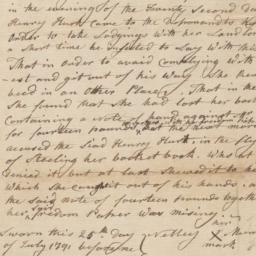 in the evening of the Twenty Second Da
Henry Hurst came to the Deponants Ho
Order to take Lodgings with her Landlor
a Short time he insisted to Lay with this
That in order to avoid Complying with
-est and git out of his Way She
beed in an other Place, That in the
She found that She had lost her
Containing a note of hand against Mr
for fourteen pounds, that the next mor
accused the Said Henry Hurst, in the
of Steeling her pocket book, Who at
denied it but at last Shewed it to he
Which She caught out of his hands, a
the Said note of fourteen pounds togeth
her freedom Paper Was missing
her
Sworn this 25th day of Nelly X
of July 1791 before me mark